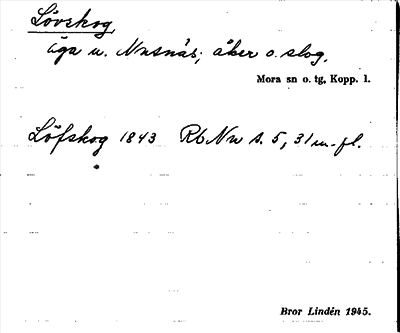 Lövskog,
äga u. Nusnäs; åker o. slog.
Mora sn o. tg, Kopp. l.
Löfskog 1843 Rb Nw s. 5, 31 m. fl.
Bror Lindén 1945.